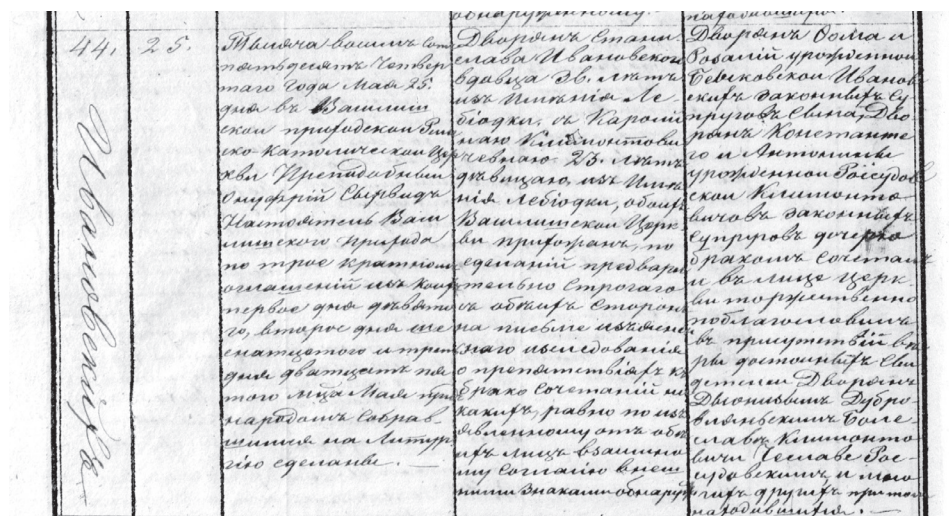 44.
25.
Ивановскихъ
Тысяча восимъ сотъ
пятьдесятъ четвер
таго года Мая 25.
дня въ Василиш
ской приходской Рим
ско Католической Цер
кви Преподобный
Онуфрій Сырвидъ
Настоятель Васи
лишского прихода
по трое кратномъ
оглашеніи изъ коих
первое дня девято
го, второе дня ше
снатцатого и трет
дня дватцать пя
того мца Мая при
народомъ собрав
шимся на Литур
гію сделаны. —
обнаруженному.
Дворянъ Стани
слава Ивановскаго
вдовца 36. летъ
изъ Имѣнія Ле
біодки, съ Кароли
ною Климонтови
чевною 23. летъ
дѣвицаю, изъ Имѣ
нія Лебіодки, обоих
Василишской Церк
ви прихожан, по
сделаніи предвари
тельно строгаго
съ обѣихъ сторонъ
на письме изъясне
ннаго изследованія
о препятствіяхъ къ
брако сочетанію ни
какихъ, равно по изъ
явленному отъ обо
ихъ лицъ взаимно
му согласію внеш
ними знаками обнаруж
находившихся.
Дворянъ Фомы и
Розаліи урожденной
Ивановскихъ законныхъ Су
пруговъ Сына, Дво
рянъ Константе
го и Антонины
урожденной Россудов
ской Климонто
вичовъ законныхъ
Супруговъ дочерью
бракомъ сочеталъ
и въ лице церк
ви торжественно
поблагословилъ
въ присутствіи ве
ры достойныхъ Сви
детелей Дворянъ
Дубро
Боле
слава Климонто
вича Чеслава Рос
судовскаго, и мно
гихъ другихъ при томъ
находившихся. —